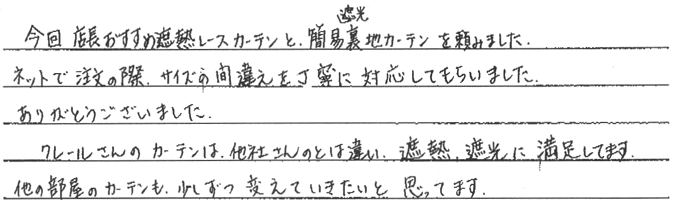 今回 店長おすすめ遮熱レースカーテンと、簡易遮光裏地カーテンを頼みました.
ネットで注文の際、サイズの間違えを丁寧に対応してもらいました.
ありがとうございました.
クレールさんのカーテンは、他社さんのとは違い、遮熱、遮光に満足してます.
他の部屋のカーテンも、少しずつ変えていきたいと思ってます.